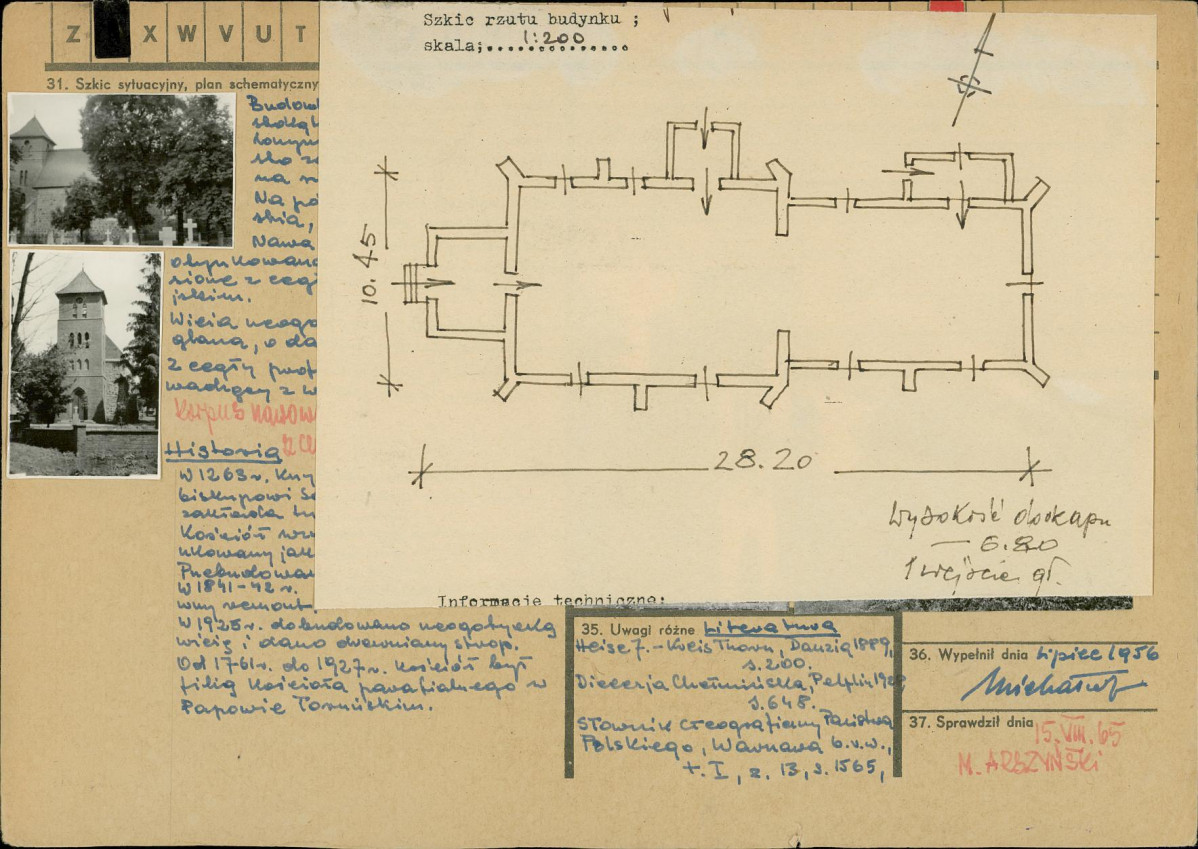 Z X W V U T
31. Szkic sytuacyjny, plan schematyczny
Szkic rzutu budynku ;
skala; 1:200
10.45
28.20
Wysokość do okapu
— 6.80
1 wejście gł.
Informacje techniczne:
Na pó
Nawa
otynkowana
Wieża neogo
z cegły
Korpus nawow
Historia
W 1263 r.
biskupowi
Kościół
Przebudowa
W 1841-42 r.
wny remont.
W 1925 r. dobudowano neogotycką
wieżę i dano drewniany strop.
Od 1761 r. do 1927 r. kościół był
filią kościoła parafialnego w
Papowie Toruńskim.
35. Uwagi różne Literatura
Heise J. - Kreis Thorn, Danzig 1889,
s. 200.
Diecezja Chełmińska, Pelplin 192
s. 648.
Słownik Geograficzny Państwa
Polskiego, Warszawa b.r.w.,
t. I, z. 13, s. 1565,
36. Wypełnił dnia Lipiec 1956
37. Sprawdził dnia 15. VIII. 65
M. ARSZYŃSKI